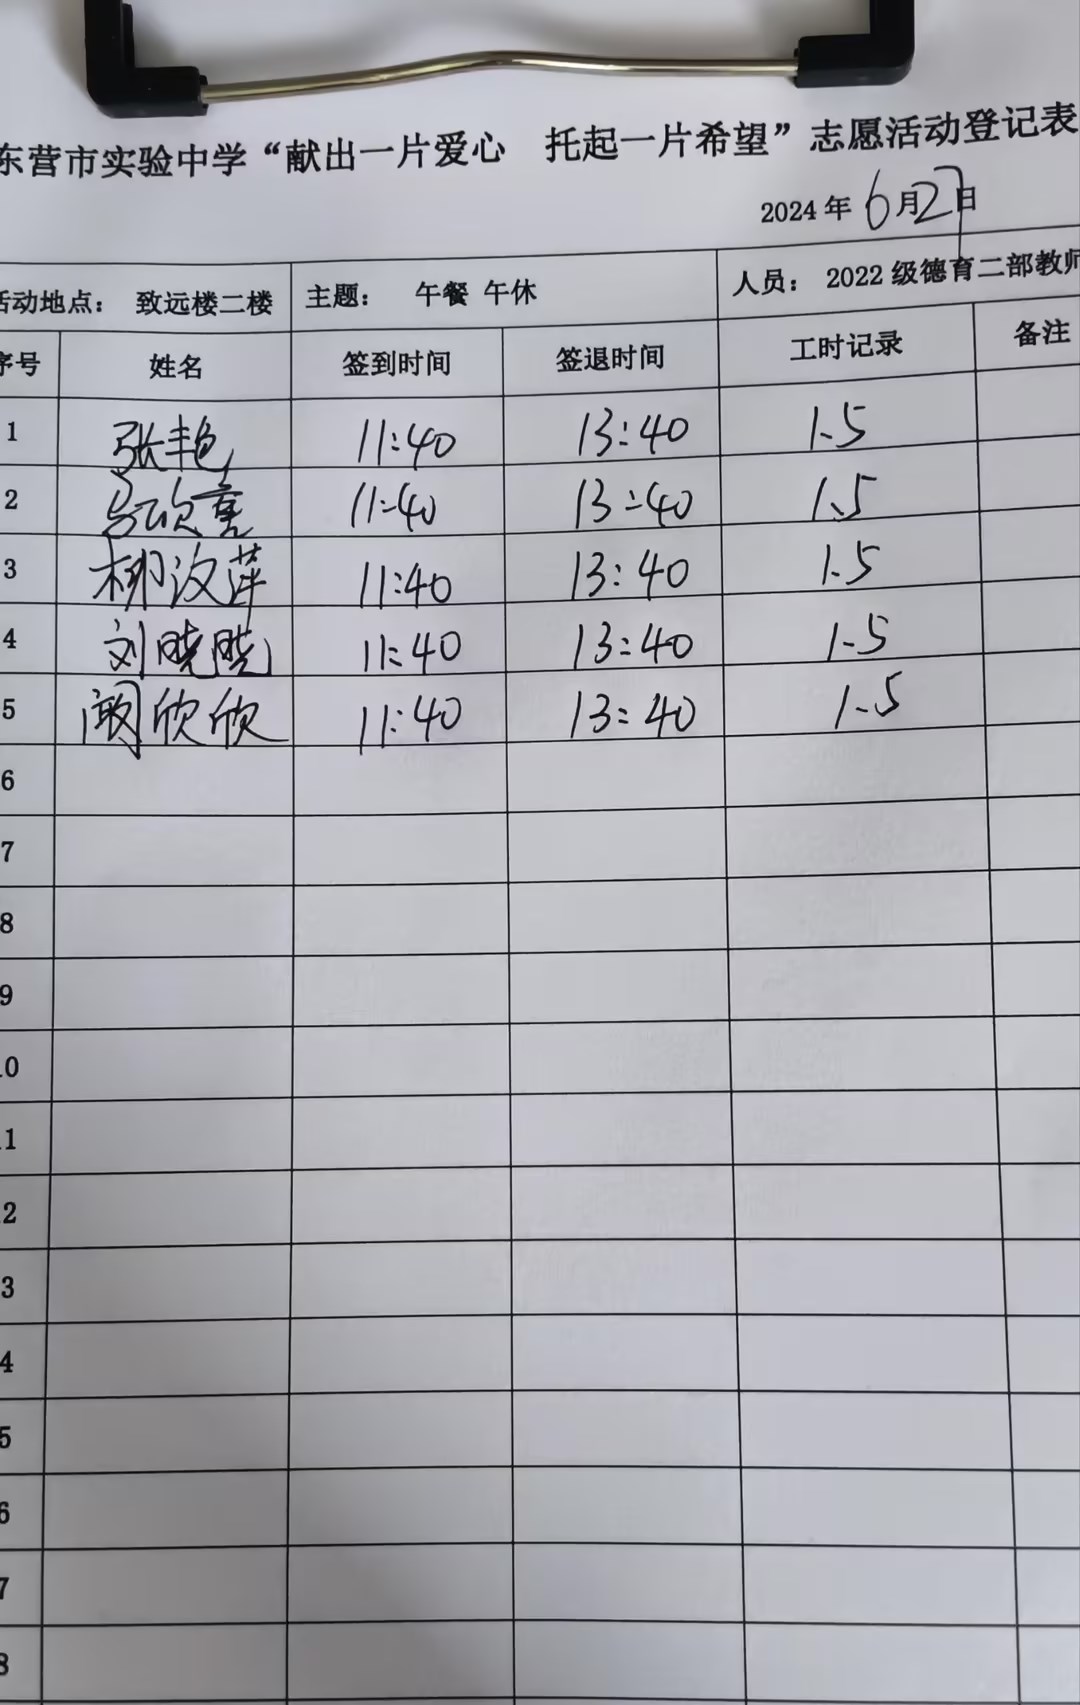 东营市实验中学“献出一片爱心 托起一片希望”志愿活动登记表
2024年6月27日
活动地点： 致远楼二楼 主题： 午餐 午休 人员： 2022级德育二部教师
序号 姓名 签到时间 签退时间 工时记录 备注
1 张艳 11:40 13:40 1.5
2 11:40 13:40 1.5
3 柳汶萍 11:40 13:40 1.5
4 刘晓晓 11:40 13:40 1.5
5 欣欣 11:40 13:40 1.5
6
7
8
9
10
11
12
13
14
15
16
17
18